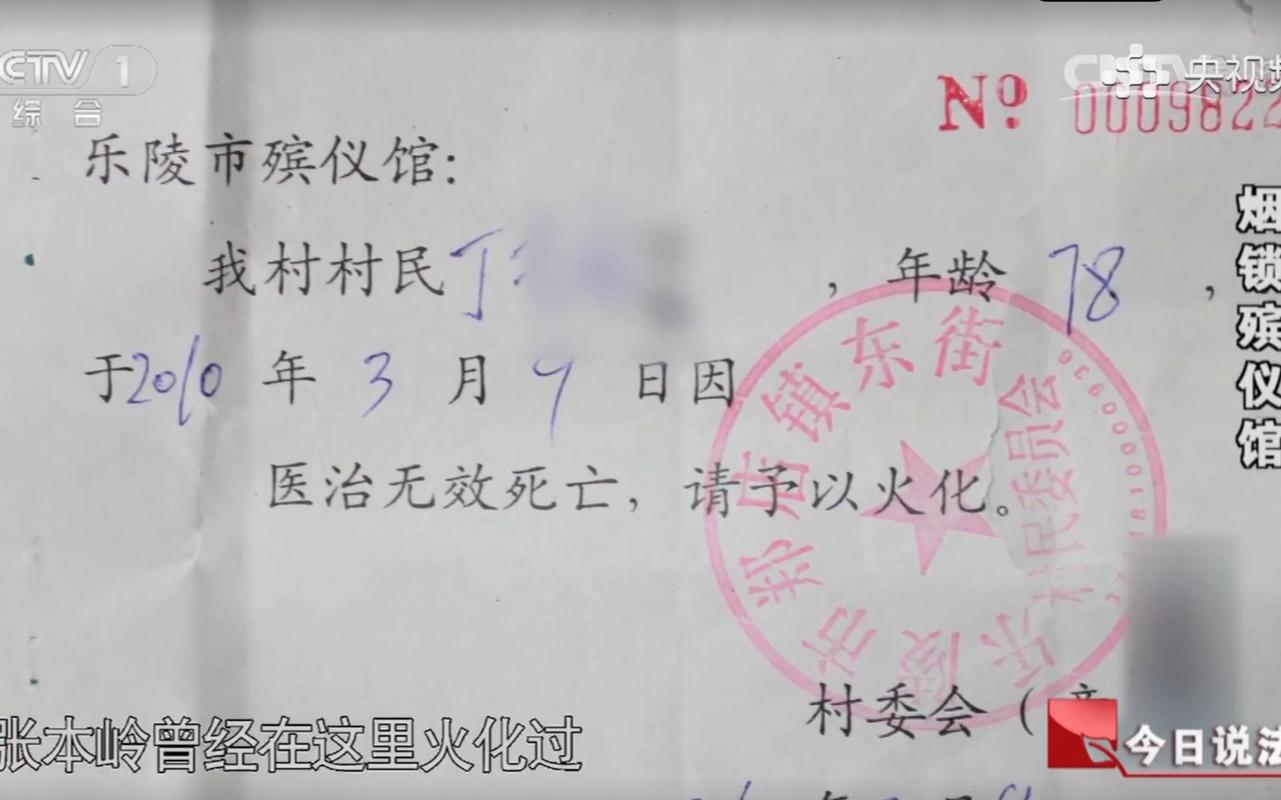 CCTV 1
综合
央视频
No 0009822
乐陵市殡仪馆:
我村村民丁 , 年龄 78 ,
于2010 年 3 月 9 日因
医治无效死亡, 请予以火化。
乐陵市郑店镇东街村民委员会
村委会 (章
烟锁殡仪馆
张本岭曾经在这里火化过
今日说法